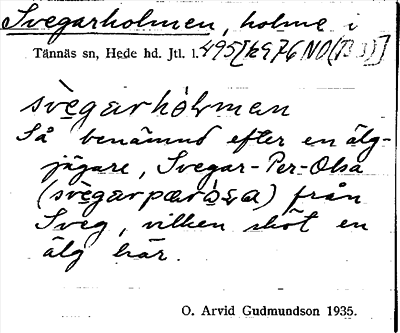 Svegarholmen, holme i
Tännäs sn, Hede hd. Jtl. l. 495[k976NO(B3)]
svègarhòlman
Så benämnd efter en älg-
jägare, Svegar-Per-Olsa
(svègarpæròsa) från
Sveg, vilken sköt en
älg här.
O. Arvid Gudmundson 1935.